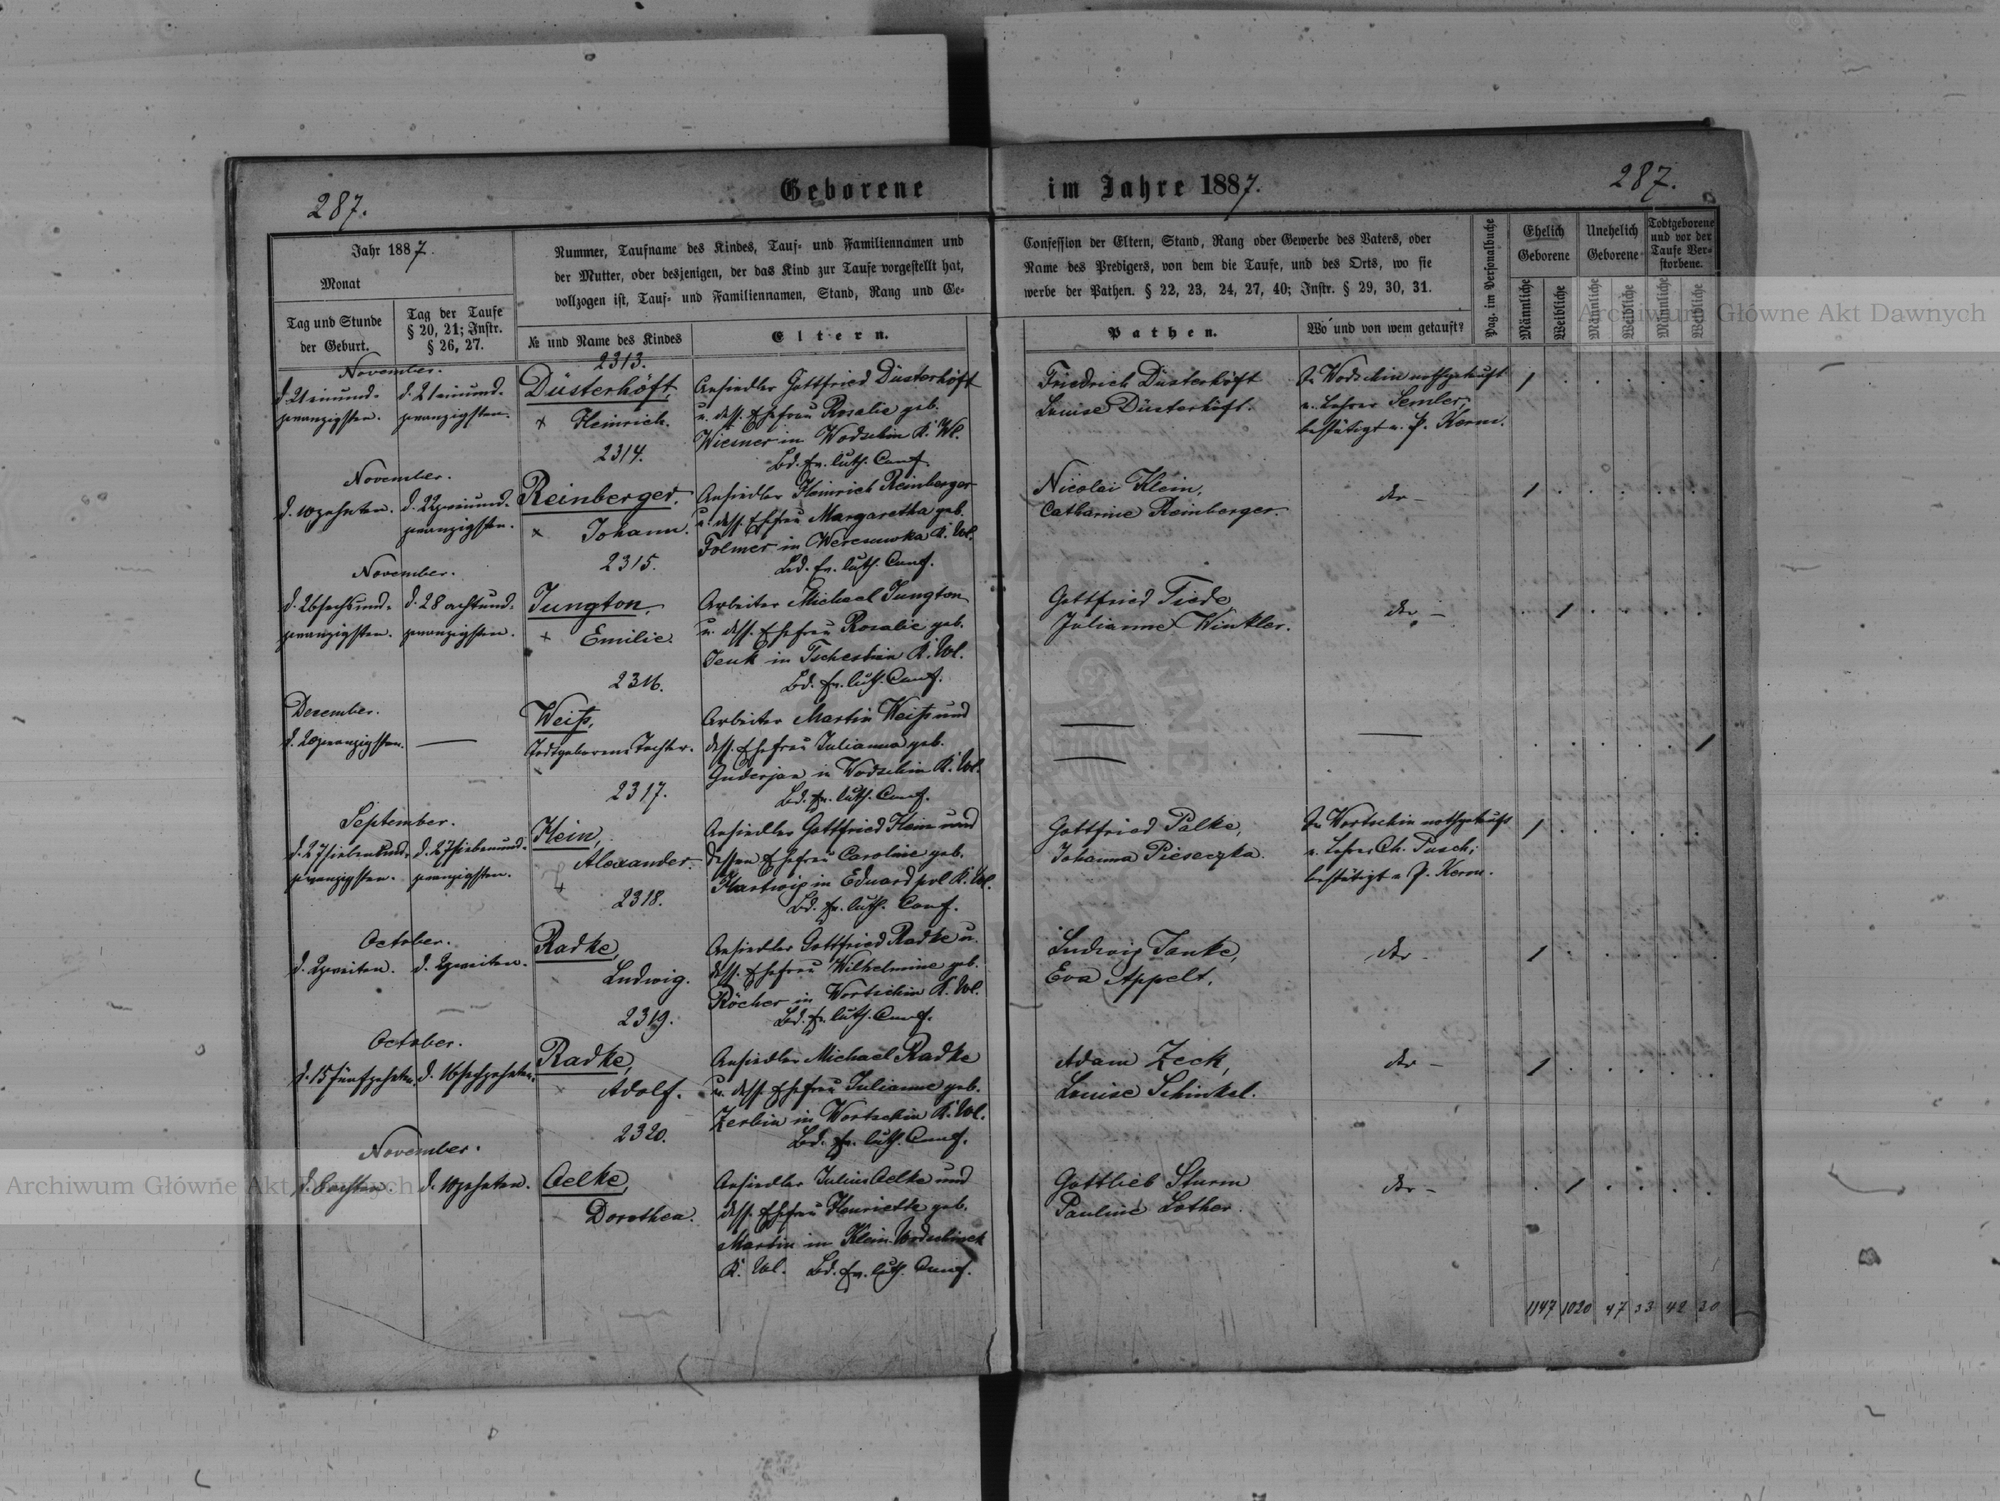 Geborene im Jahre 1887.
287.
287.
Jahr 1887.
Monat
Tag und Stunde der Geburt.
Tag der Taufe § 20, 21; Instr. § 26, 27.
Nummer, Taufname des Kindes, Tauf- und Familiennamen und
der Mutter, oder desjenigen, der das Kind zur Taufe vorgestellt hat,
vollzogen ist, Tauf- und Familiennamen, Stand, Rang und Ge-
№ und Name des Kindes
Eltern.
Confession der Eltern, Stand, Rang oder Gewerbe des Vaters, oder
Name des Predigers, von dem die Taufe, und des Orts, wo sie
werbe der Pathen. § 22, 23, 24, 27, 40; Instr. § 29, 30, 31.
Pathen.
Wo und von wem getauft?
Pag. im Personalbuche
Ehelich Geborene
Unehelich Geborene
Todtgeborene und vor der Taufe Verstorbene.
Männliche
Weibliche
Männliche
Weibliche
Männliche
Weibliche
November.
d. 21 einund-
zwanzigsten.
d. 21 einund-
zwanzigsten.
2313.
Düsterhöft,
+ Heinrich.
Ansiedler Gottfried Düsterhöft
u. dess. Ehefrau Rosalie geb.
Wiesner in Wodschin K. Wl.
Bd. ev. luth. Conf.
Friedrich Düsterhöft
Louise Düsterhöft.
In Wodschin nothgetauft
v. Lehrer Semler;
bestätigt v. P. Kerm.
1
November.
d. 10 zehnten.
d. 22 zweiund-
zwanzigsten.
2314.
Reinberger.
× Johann.
Ansiedler Heinrich Reinberger
u. dess. Ehefrau Margaretha geb.
Folmer in K. Wl.
Bd. ev. luth. Conf.
Nicolai Klein,
Catharine Reinberger.
dto –
1
November.
d. 26 sechsund-
zwanzigsten.
d. 28 achtund-
zwanzigsten.
2315.
Jungton,
+ Emilie.
Arbeiter Michael Jungton
u. dess. Ehefrau Rosalie geb.
in K. Wl.
Bd. ev. luth. Conf.
Gottfried Tiede
Julianne Winkler.
dto –
1
December.
d. 20 zwanzigsten.
—
2316.
Weiß,
Todtgeborene Tochter.
Arbeiter Martin Weiß und
dess. Ehefrau Julianna geb.
Guderjan in Wodschin K. Wl.
Bd. ev. luth. Conf.
—
—
—
1
September.
d. 27 siebenund-
zwanzigsten.
d. 27 siebenund-
zwanzigsten.
2317.
Hein,
Alexander.
+
Ansiedler Gottfried Hein und
dessen Ehefrau Caroline geb.
Hartwig in Eduardpol K. Wl.
Bd. ev. luth. Conf.
Gottfried Palke,
Johanna Pieseczka.
In Wortschin nothgetauft
v. Lehrer Ch. Pusch;
bestätigt v. P. Kerm.
1
October.
d. 2 zweiten.
d. 2 zweiten.
2318.
Radke,
Ludwig.
Ansiedler Gottfried Radke u.
dess. Ehefrau Wilhelmine geb.
Röcher in Wortschin K. Wl.
Bd. ev. luth. Conf.
Ludwig Janke,
Eva Appelt.
dto –
1
October.
d. 15 fünfzehnten.
d. 16 sechzehnten.
2319.
Radke,
× Adolf.
Ansiedler Michael Radke
u. dess. Ehefrau Julianne geb.
Zerbin in Wortschin K. Wl.
Bd. ev. luth. Conf.
Adam Zeck,
Louise Schinkel.
dto –
1
November.
d. 8 achten.
d. 10 zehnten.
2320.
Oelke,
Dorothea.
Ansiedler Julius Oelke und
dess. Ehefrau Henriette geb.
Martin in Klein
K. Wl. Bd. ev. luth. Conf.
Gottlieb Sturm
Pauline Lother.
dto –
1
1147 1020 47 33 42 20
Archiwum Główne Akt Dawnych
Archiwum Główne Akt Dawnych